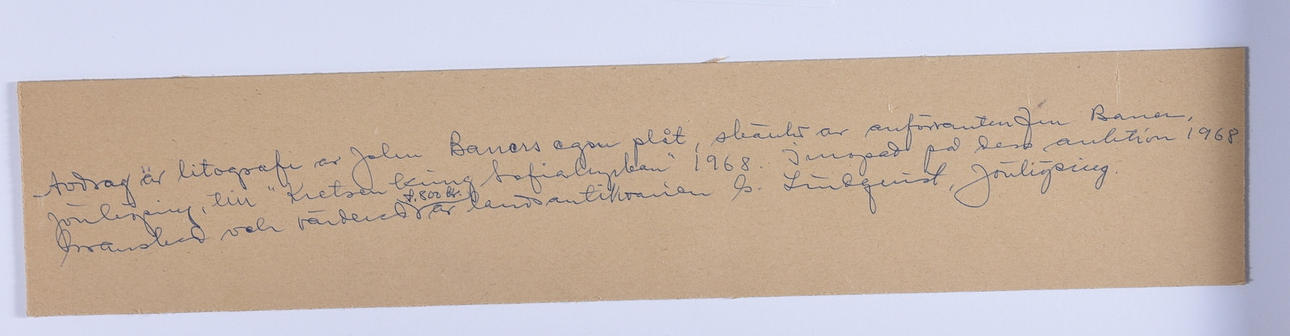 Avdrag är litografi av John Bauers egen plåt, skänkt av anförvanten Fru Bauer,
Jönköping, till "Kretsen kring Sofiakyrkan" 1968. Inropad på dess auktion 1968
f. 800 kr.
Granskad och värderad av landsantikvarien G. Lindquist, Jönköping.